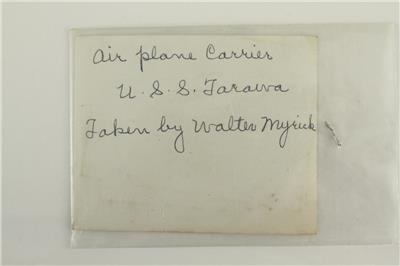 Air plane Carrier
U.S.S. Tarawa
Taken by Walter Myrick